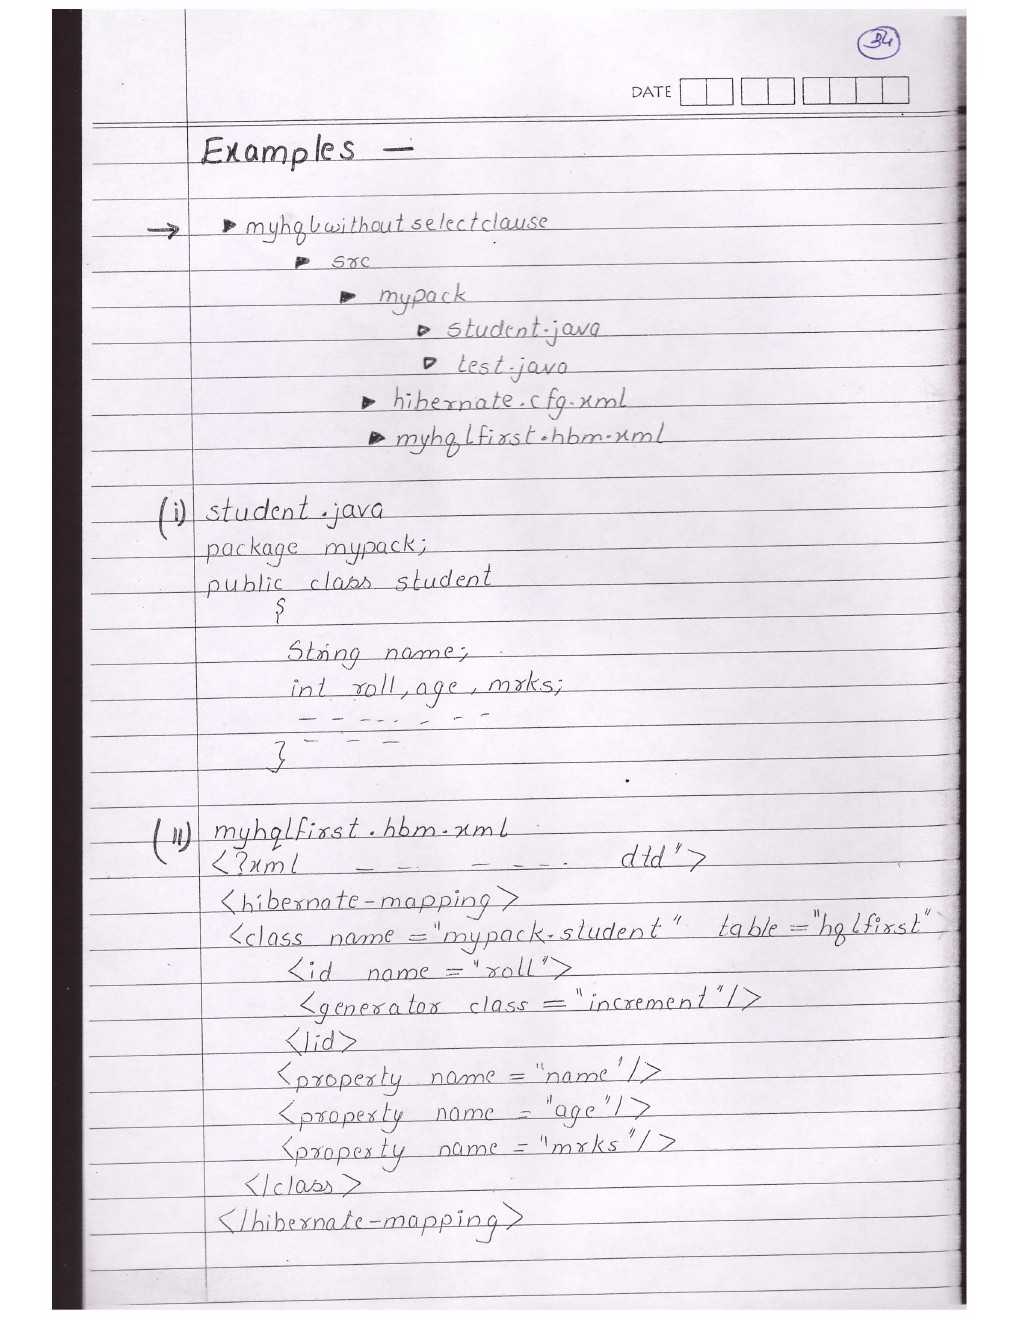 34
DATE
Examples —
→ ▶ myhqlwithoutselectclause
▶ src
▶ mypack
▷ student.java
▷ test.java
▶ hibernate.cfg.xml
▶ myhqlfirst.hbm.xml
(i) student.java
package mypack;
public class student
{
String name;
int roll, age, mrks;
- - - - - - -
- - -
}
(ii) myhqlfirst.hbm.xml
<?xml - - - - - - dtd">
<hibernate-mapping>
<class name="mypack.student" table="hqlfirst">
<id name="roll">
<generator class="increment"/>
</id>
<property name="name"/>
<property name="age"/>
<property name="mrks"/>
</class>
</hibernate-mapping>